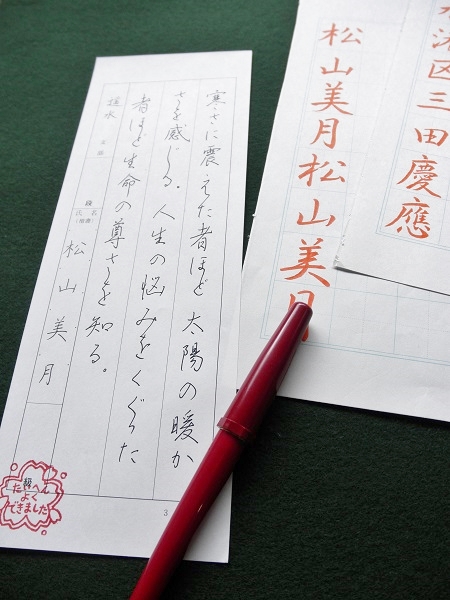 寒さに震えた者ほど太陽の暖か
さを感じる。人生の悩みをくぐった
者ほど生命の尊さを知る。
段
氏名
松山美月
3
たいへん
よく
できました
松山美月松山美月
区三田慶應